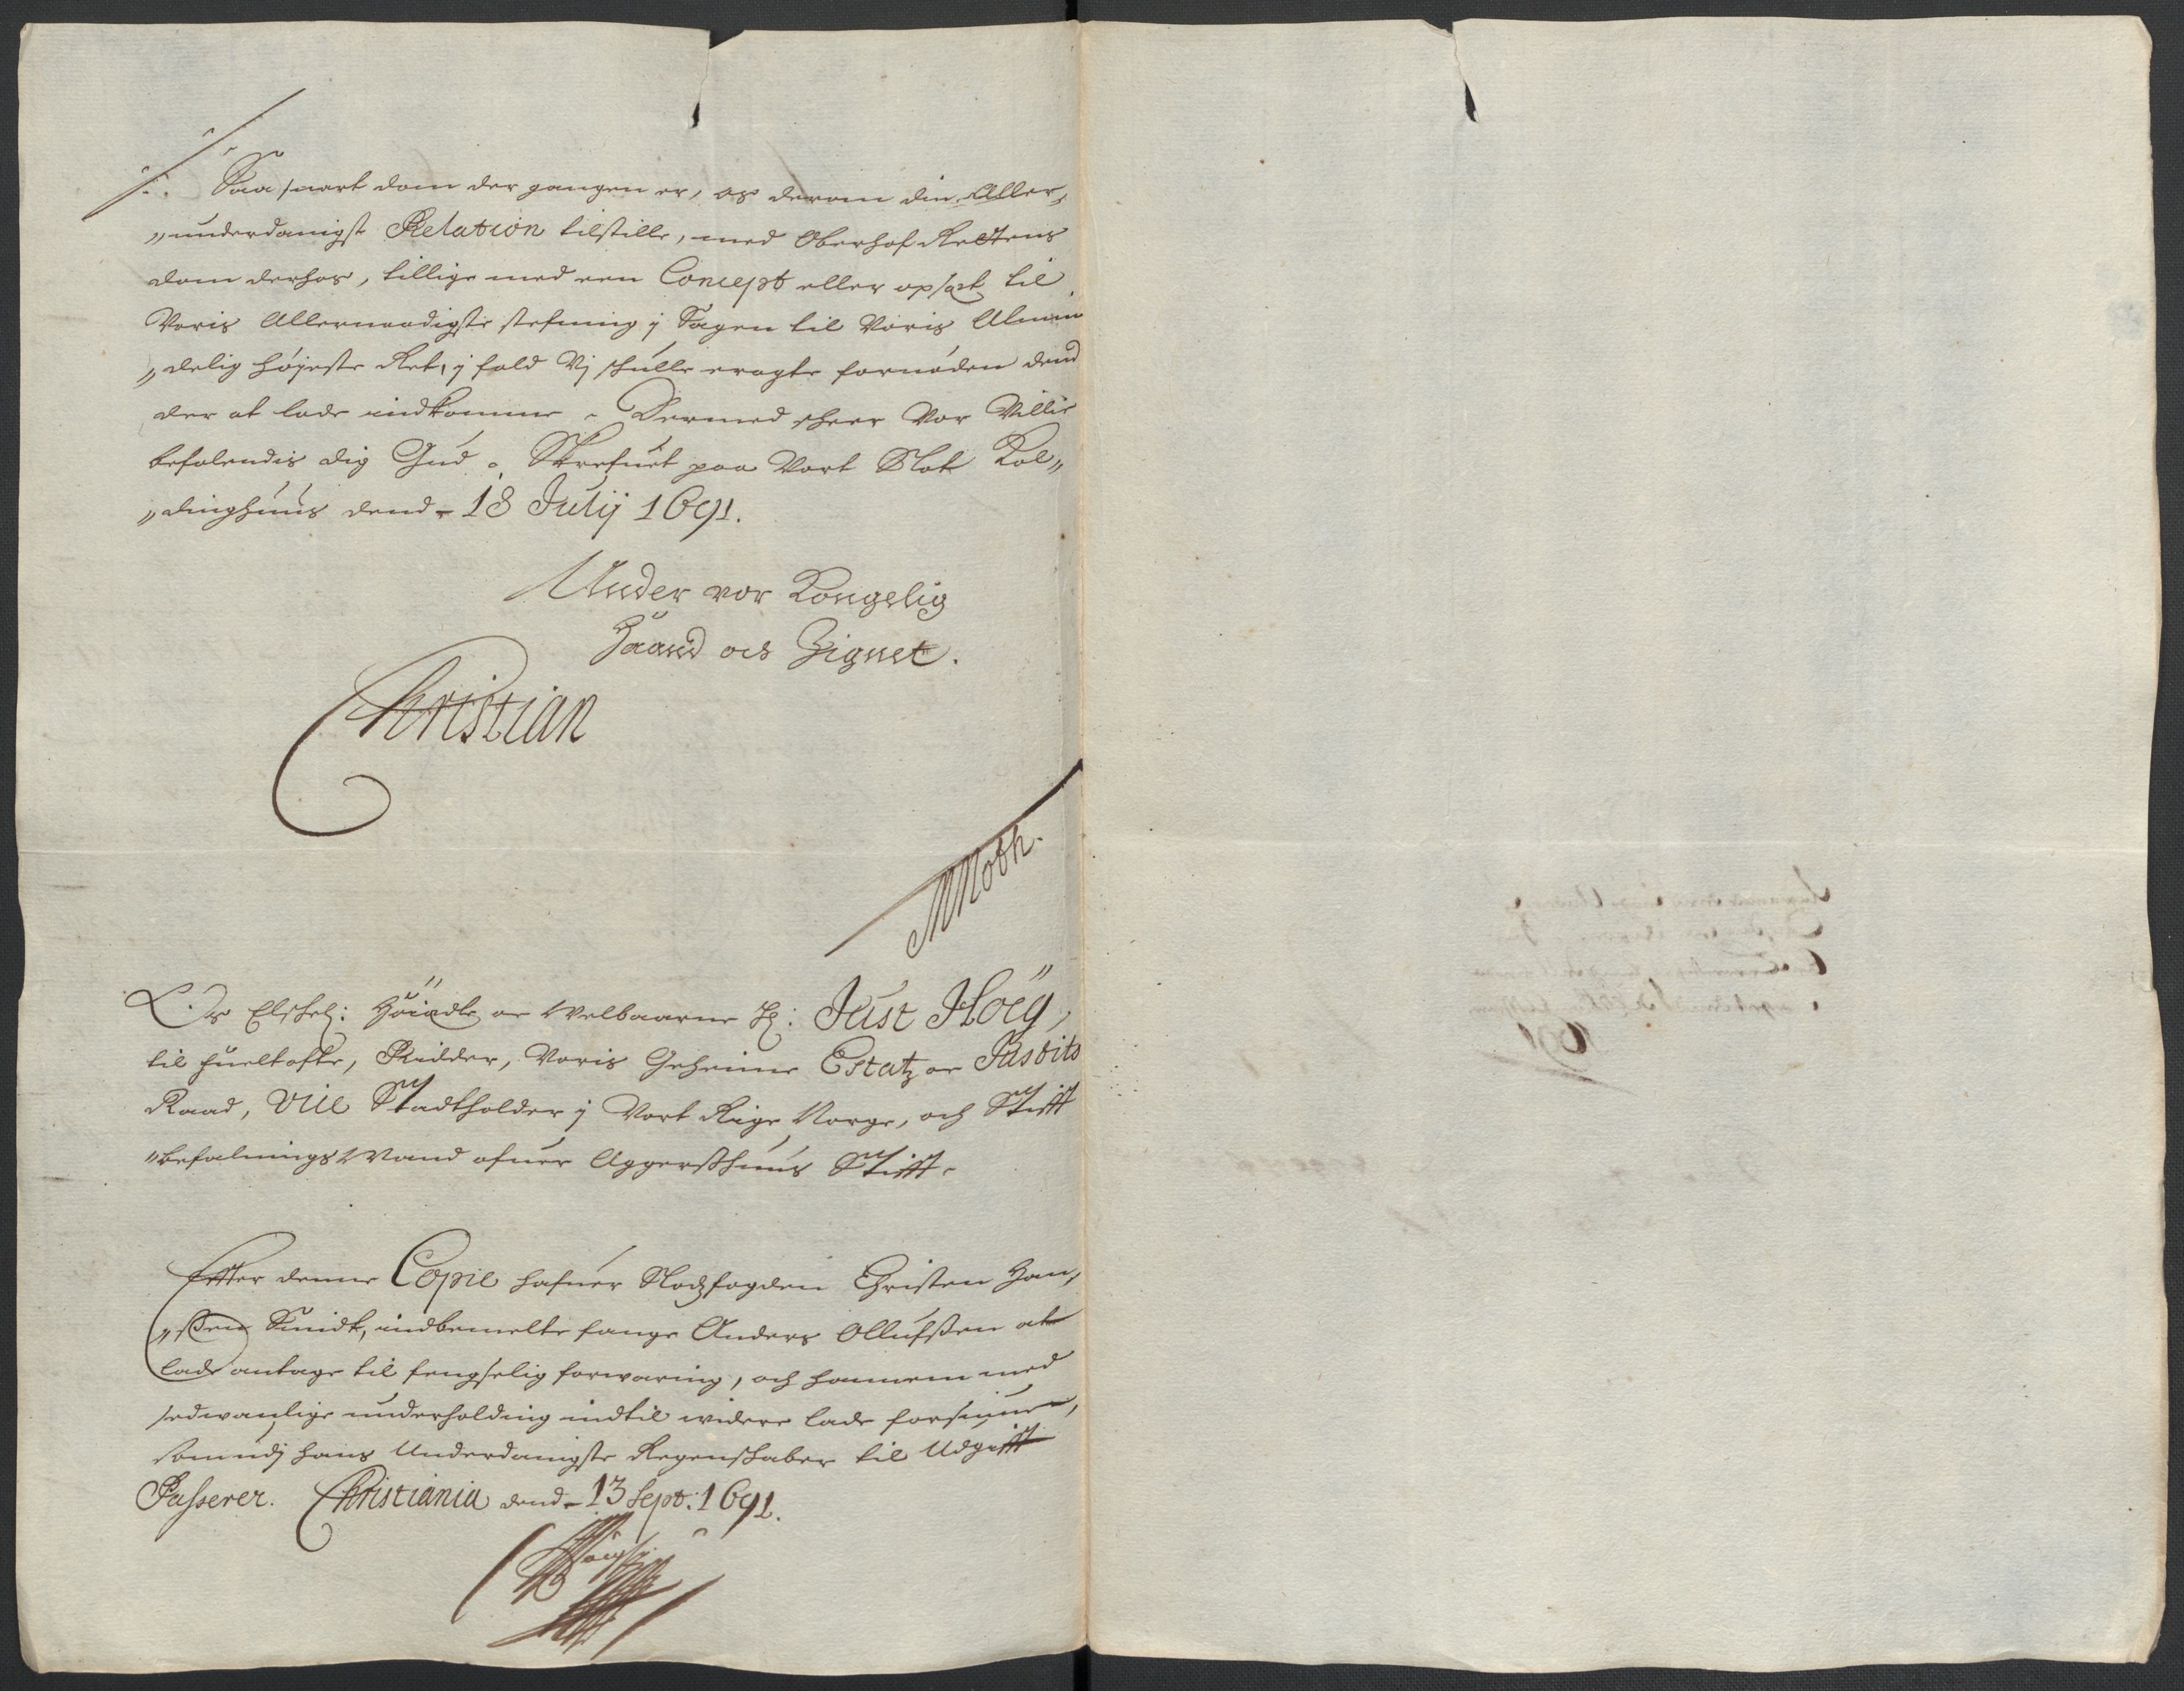 Saa snart dom der gangen er, os derom din Aller,
„underdanigst Relation tilstille, med Oberhof Rettens
dom derhos, tillige med een Concept eller opsat til
Voris Allernaadigste stefning j Sagen til Voris Almin
„delig höjeste Ret, j fald Vj skulle eragte fornöden dend
der at lade indkomme. Dermed skeer Vor Villie
befalendis dig Gud. Skrefuet paa Vort Slot Kol„
„dinghuus dend 18 Julij 1691.
Under vor Kongelig
Haand och Zignet.
Christian
MMoth.
Os Elskel: Höiædle oc Welbaarne H: Just Höeg,
til fueltofte, Ridder, Voris Geheime Estatz oc Justits
Raad, Vice Stadtholder j Vort Rige Norge, och Stifft
„befalnings Mand ofuer Aggershuus Stifft.
Effter denne Copie hafuer Slodzfogden Christen Han,
„ßen Smidt, indbemelte fange Anders Ollufßen at
lade antage til fengselig forwaring, och hannem med
sedwanlige underholding indtil widere lade forsiune,
som udj hans Underdanigste Regenskaber til Udgifft
Passerer. Christiania dend 13 Sept: 1691.